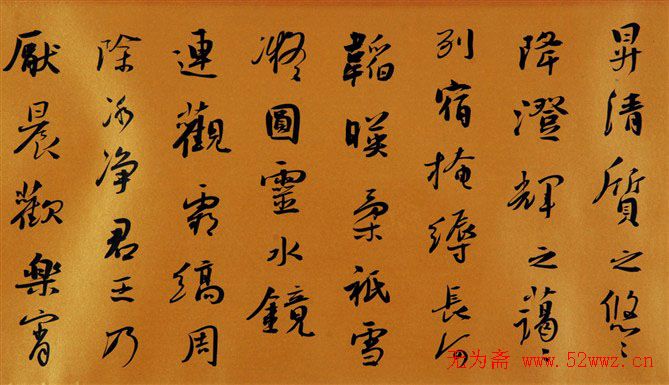 昇清質之悠〻
降澄輝之藹〻
列宿掩縟長河
韜暎柔祇雪
凝圓靈水鏡
連觀霜縞周
除冰净君王乃
厭晨歡樂宵
无为斋 www.52wwz.cn